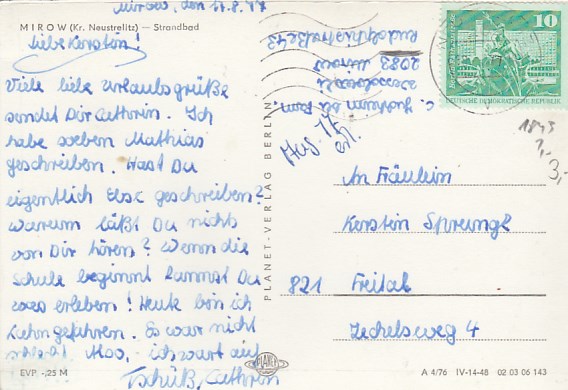 Mirow, den 17.8.77
MIROW (Kr. Neustrelitz) — Strandbad
Liebe Kerstin!
Viele liebe Urlaubsgrüße
sendet Dir Cathrin. Ich
habe soeben Mathias
geschrieben. Hast Du
eigentlich Elsx geschrieben?
Warum läßt Du nichts
von Dir hören? Wenn die
Schule beginnt kannst Du
was erleben! Heute bin ich
Kahn gefahren. Es war nicht
schlecht. Also, ich wart auf
Tschüß, Cathrin
EVP -,25 M
PLANET-VERLAG BERLIN
PLANET
2083 Mirow
Rudolphistraße 43
10
DEUTSCHE DEMOKRATISCHE REPUBLIK
Aug. 77
erh.
1843
3,-
An Fräulein
Kerstin Sprungk
821 Freital
Zechelsweg 4
A 4/76 IV-14-48 02 03 06 143